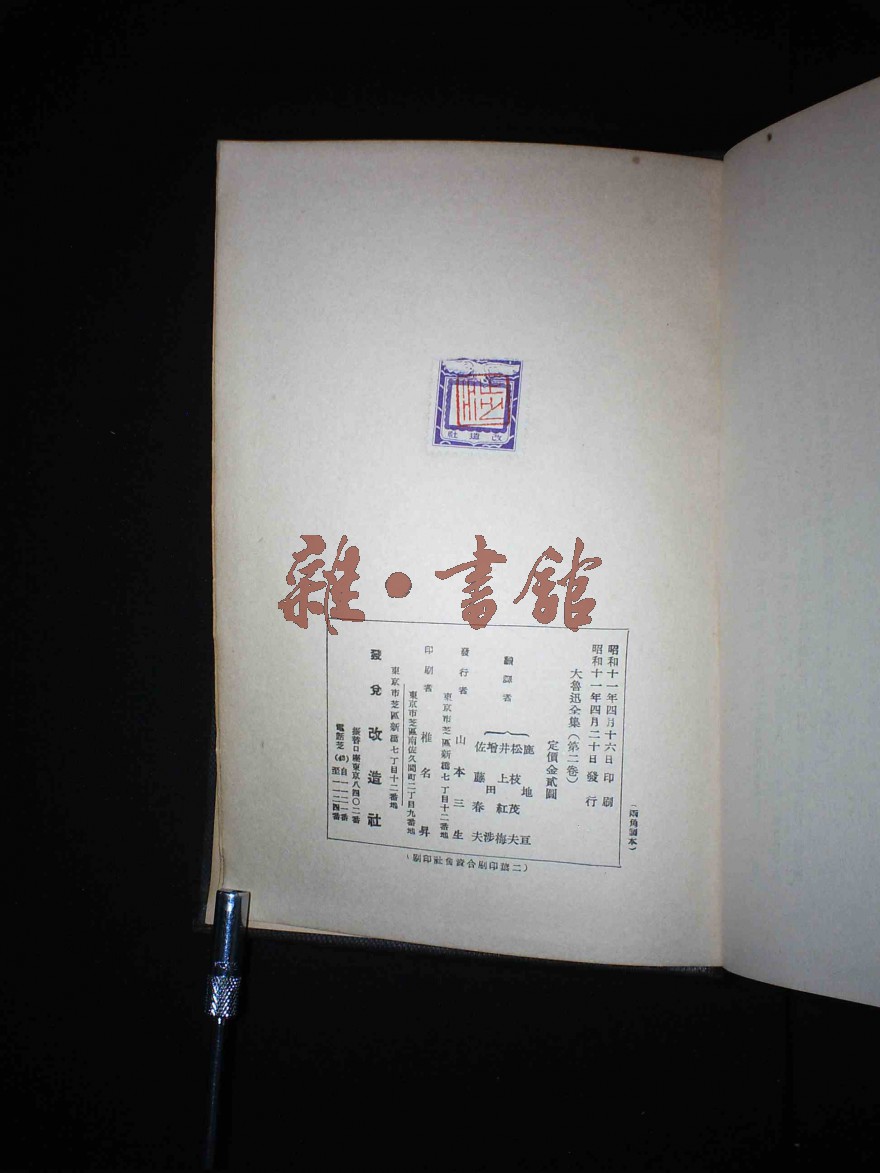 改造社
雜·書舘
昭和十一年四月十六日印刷
昭和十一年四月二十日發行
大魯迅全集(第二卷)
定價金貳圓
飜譯者
鹿地亘
松枝茂夫
井上紅梅
增田涉
佐藤春夫
發行者
東京市芝區新橋七丁目十二番地
山本三生
印刷者
東京市芝區南佐久間町二丁目九番地
椎名昇
東京市芝區新橋七丁目十二番地
發兌 改造社
振替口座東京八四〇二番
電話芝(43)自一一二一番
至一一二四番
(兩角製本)
(二葉印刷合資會社印刷)